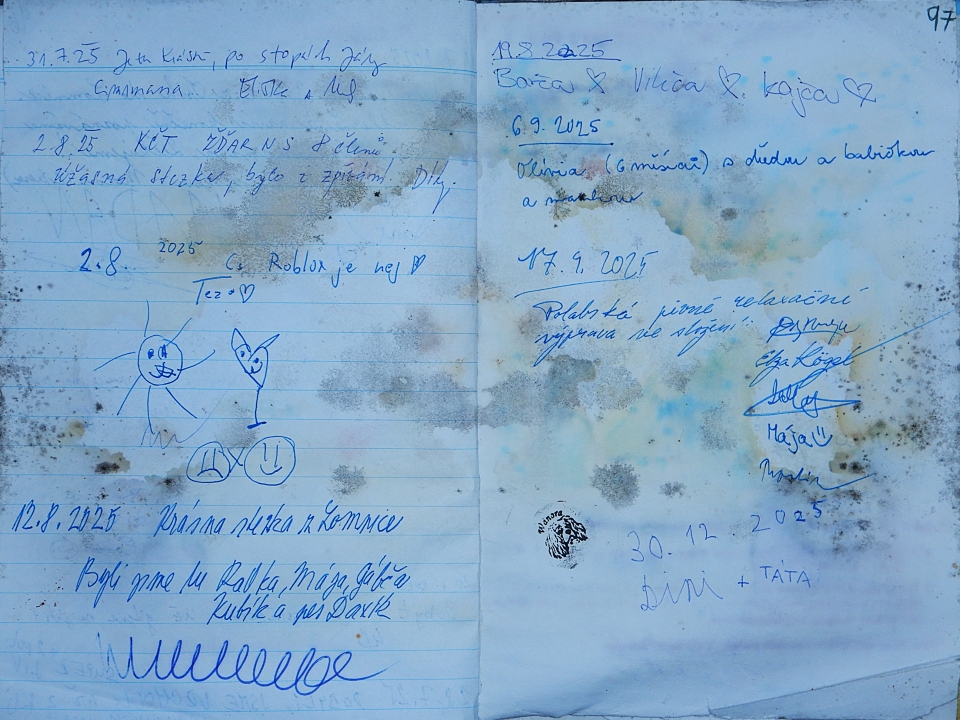 31.7.25 po stopách Járy
Cimrmana Eliška a
2.8.25 KČT ŽĎÁR N S 8 členů.
Úžásná stezka, bylo z zpívání. Díky.
2.8. 2025 Cs Roblox je nej
Tez
12.8.2025 Krásna stezka u Lomnice
Byli jsme tu Radka, Mája, Gábča
Kubík a pes Daxík
97
19.8.2025
Barča Vilča Kajča
6.9. 2025
Olivia (6 měsíců) s dědou a babičkou
a mamkou
17.9.2025
Polabská pivně relaxační
výprava ve složení:
Mája
Wanora
30.12.2025
+ TÁTA